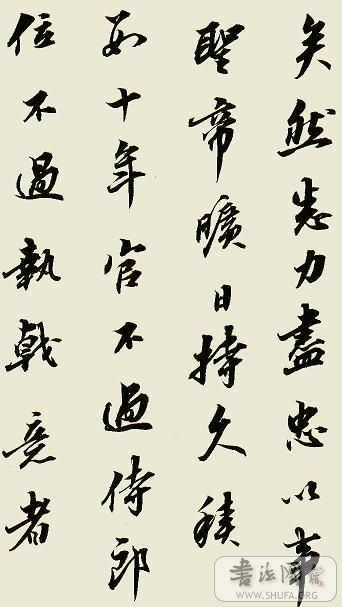 矣然悉力盡忠以事
聖帝曠日持久積
數十年官不過侍郎
位不過執戟意者
書法
WWW.SHUFA.ORG